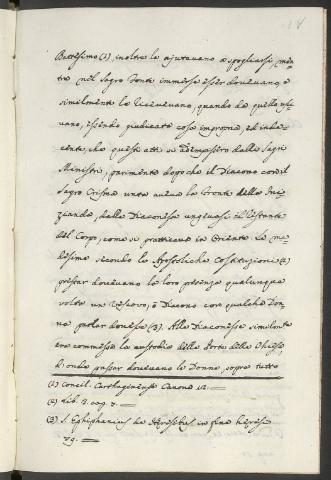 Battesimo (1), inoltre le ajutavano a spogliarsi, men-
tre nel Sagro Fonte immerse esser dovevano, e
similmente le ricevevano, quando da quello usci-
vano, essendo giudicata cosa impropria, ed inde-
cente, che questi atti si facessero dalli Sagri
Ministri, parimente dopo che il Diacono con il
Sagro Crisma unta aveva la Fronte della Ini-
zianda, dalla Diaconessa ungevasi il restante
del Corpo, come si pratticava in Oriente. Le me-
desime secondo le Apostoliche Costituzioni (2)
prestar dovevano la loro presenza qualunque
volta un Vescovo, o Diacono con qualche Don-
na parlar dovesse (3). Alla Diaconessa similmente
era commessa la custodia della Porta della Chiesa,
d'onde passar dovevano le Donne, sopra tutto
(1) Concil. Cartaginense Canone 12.
(2) Lib. 2. cap. 7.
(3) S. Ephiphanius de Heresibus in fine heresis
79.